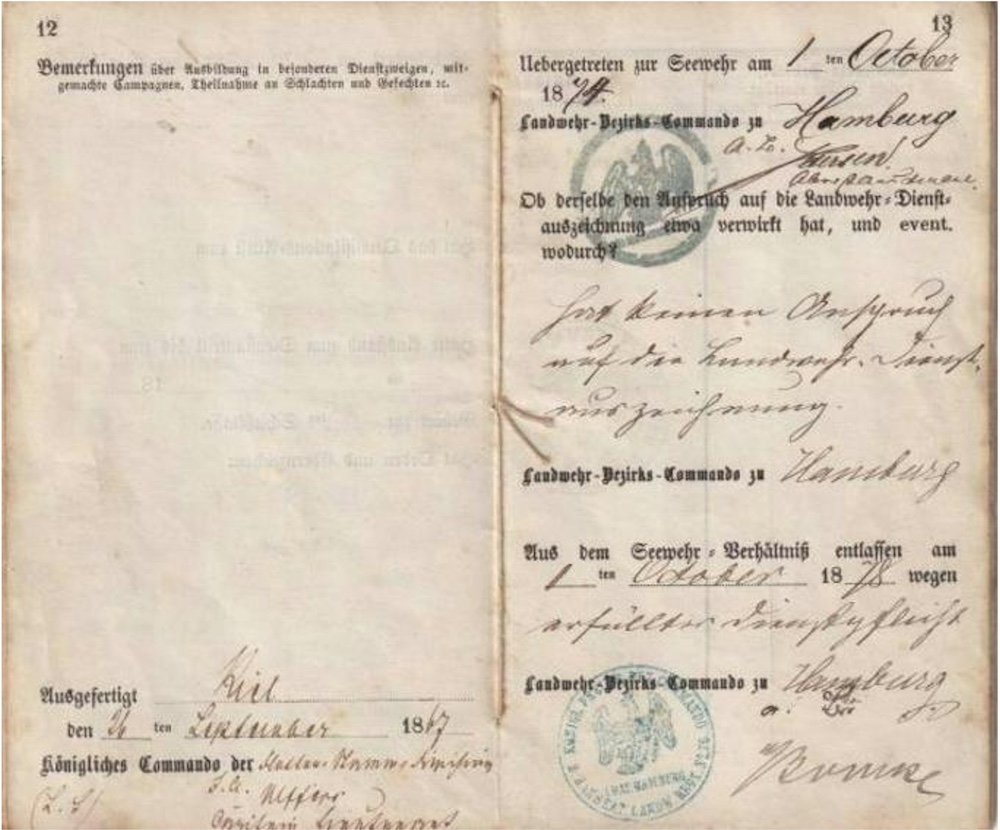 12
Bemerkungen über Ausbildung in besonderen Dienstzweigen, mit-
gemachte Campagnen, Theilnahme an Schlachten und Gefechten ꝛc.
Ausgefertigt Kiel
den 26 ten September 1867
Königliches Commando der Division
(L. S.)
Capitain Lieutenant
13
Uebergetreten zur Seewehr am 1 ten October
1874.
Landwehr-Bezirks-Commando zu Hamburg
Ob derselbe den Anspruch auf die Landwehr-Dienst-
auszeichnung etwa verwirkt hat, und event.
wodurch?
hat keinen Anspruch
auf die Landwehr-Dienst-
auszeichnung.
Landwehr-Bezirks-Commando zu Hamburg
Aus dem Seewehr-Verhältniß entlassen am
1 ten October 1878 wegen
erfüllter Dienstpflicht
Landwehr-Bezirks-Commando zu Hamburg